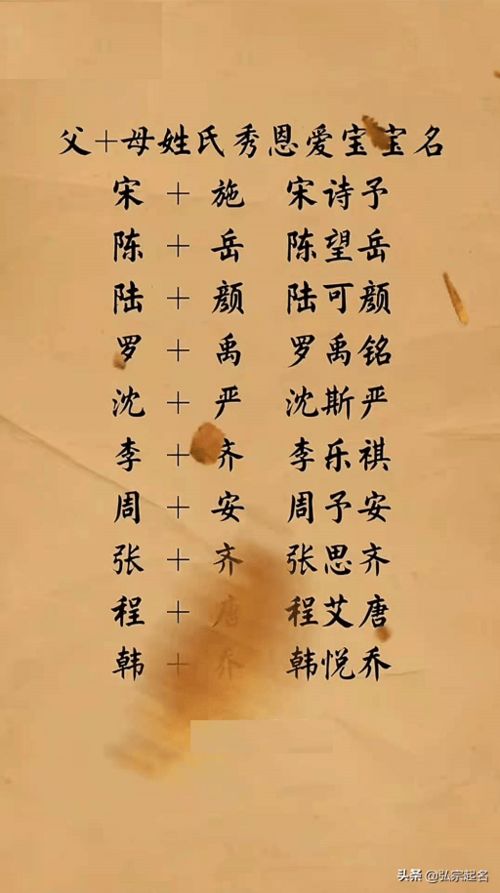 父+母姓氏秀恩爱宝宝名
宋 + 施 宋诗予
陈 + 岳 陈望岳
陆 + 颜 陆可颜
罗 + 禹 罗禹铭
沈 + 严 沈斯严
李 + 齐 李乐祺
周 + 安 周予安
张 + 齐 张思齐
程 + 唐 程艾唐
韩 + 乔 韩悦乔
头条 @弘宗起名